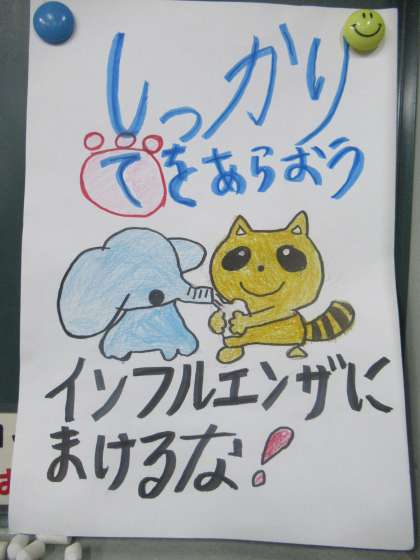 しっかり
てをあらおう
インフルエンザに
まけるな!